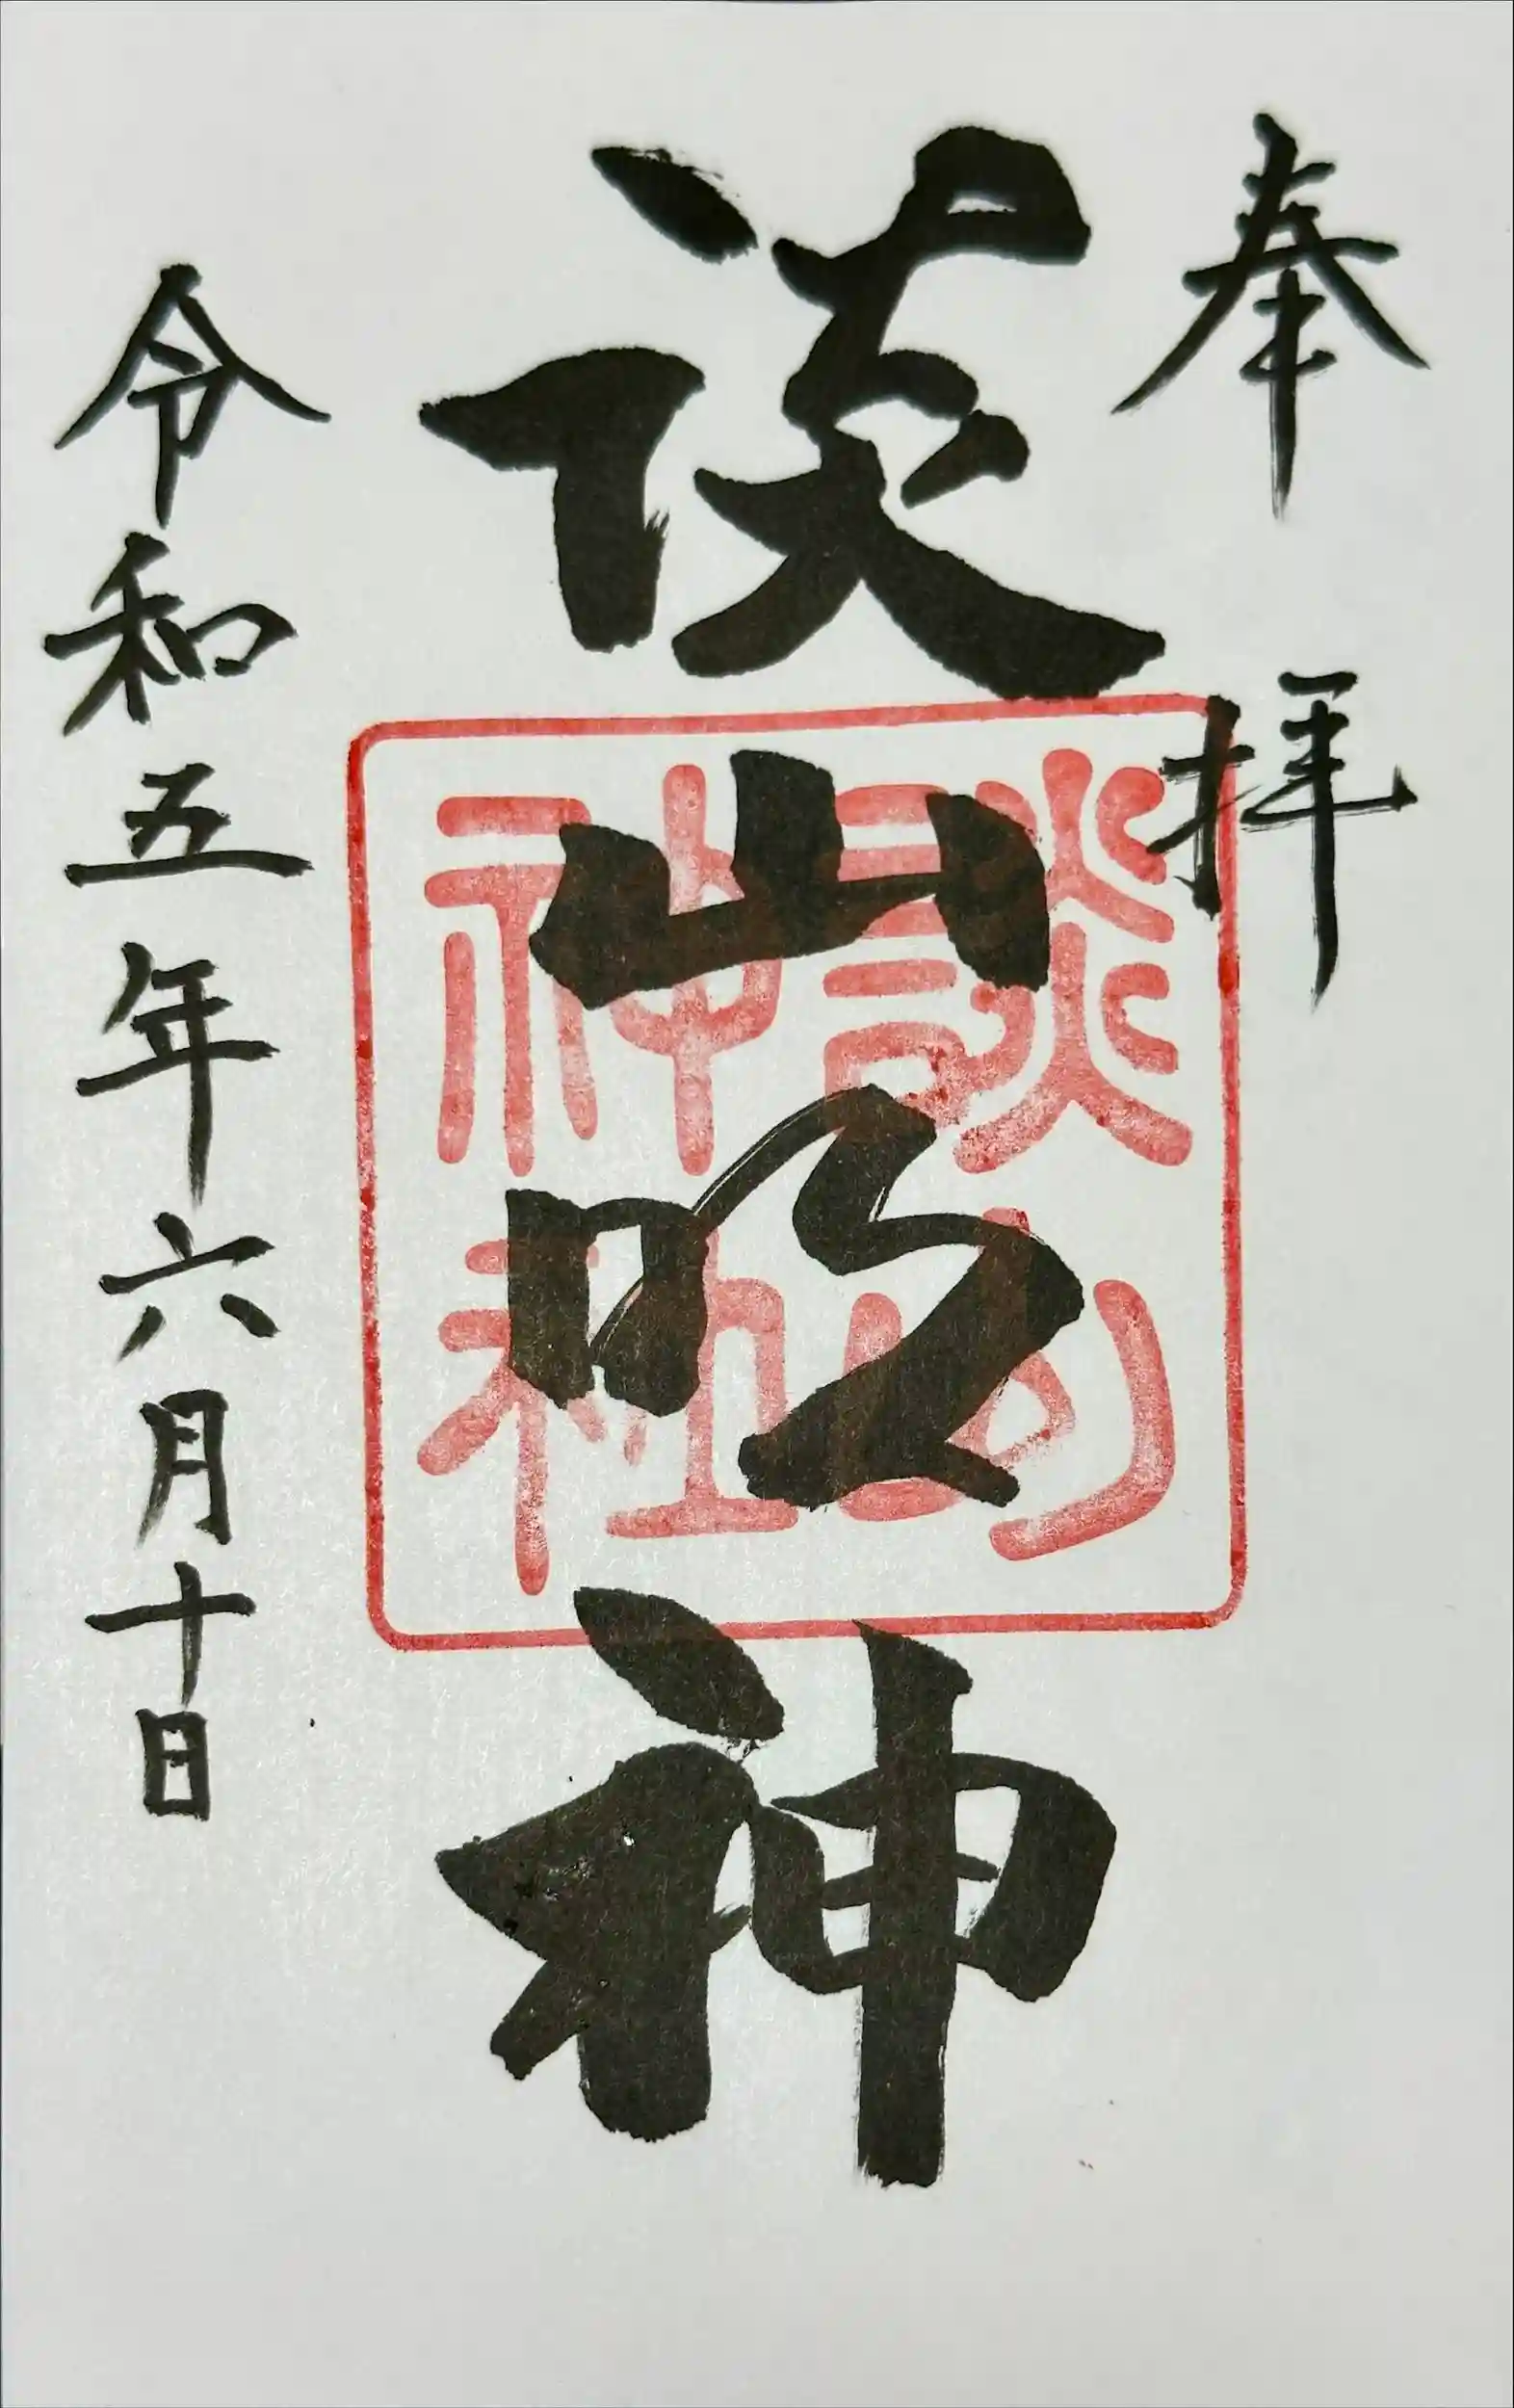 奉拝
談山明神
談山
神社
令和五年六月十日